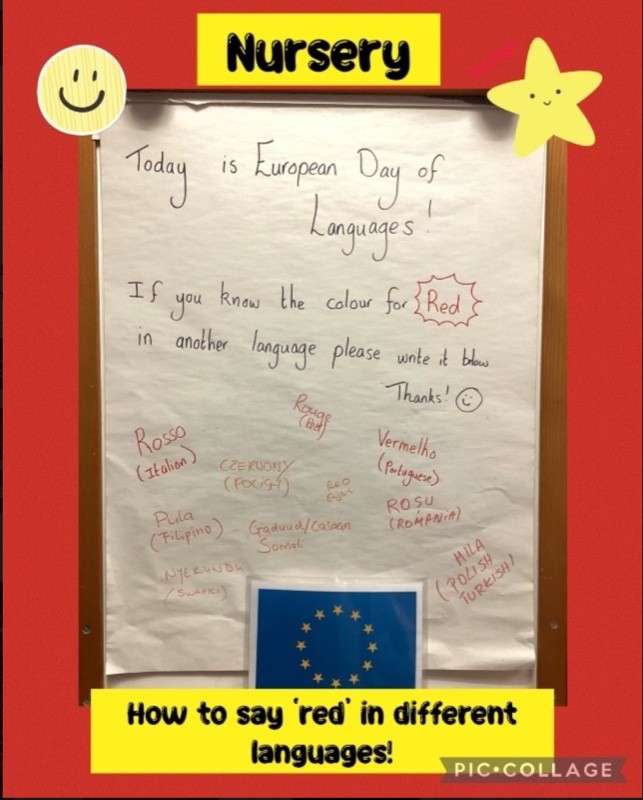 Nursery
Today is European Day of
Languages!
If you know the colour for Red
in another language please write it below
Thanks!
Rouge
Rosso
(Italian)
Vermelho
(Portuguese)
CZERWONY
(POLISH)
RED
ROSU
(ROMANIA)
Pula
(Filipino)
Gaduud/Casaan
Somali
NYEKUNDU
(Swahili)
(POLISH
TURKISH)
How to say 'red' in different
languages!
PIC•COLLAGE